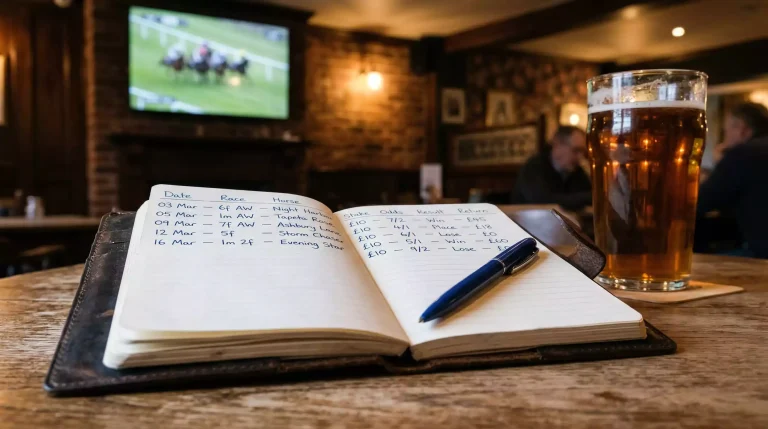 Date Race Horse
03 Mar — 6f AW — Night
05 Mar — 1m AW — Tapeta
09 Mar — 7f AW — Ashbury Lane
12 Mar — 5f — Storm Chaser
16 Mar — 1m 2f — Evening Star
Stake Odds Result Return
£10 — 7/2 — Win — £45
£10 — 4/1 — Place — £18
£10 — 6/1 — Lose — £0
£10 — 5/1 — Win — £60
£10 — 9/2 — Lose —